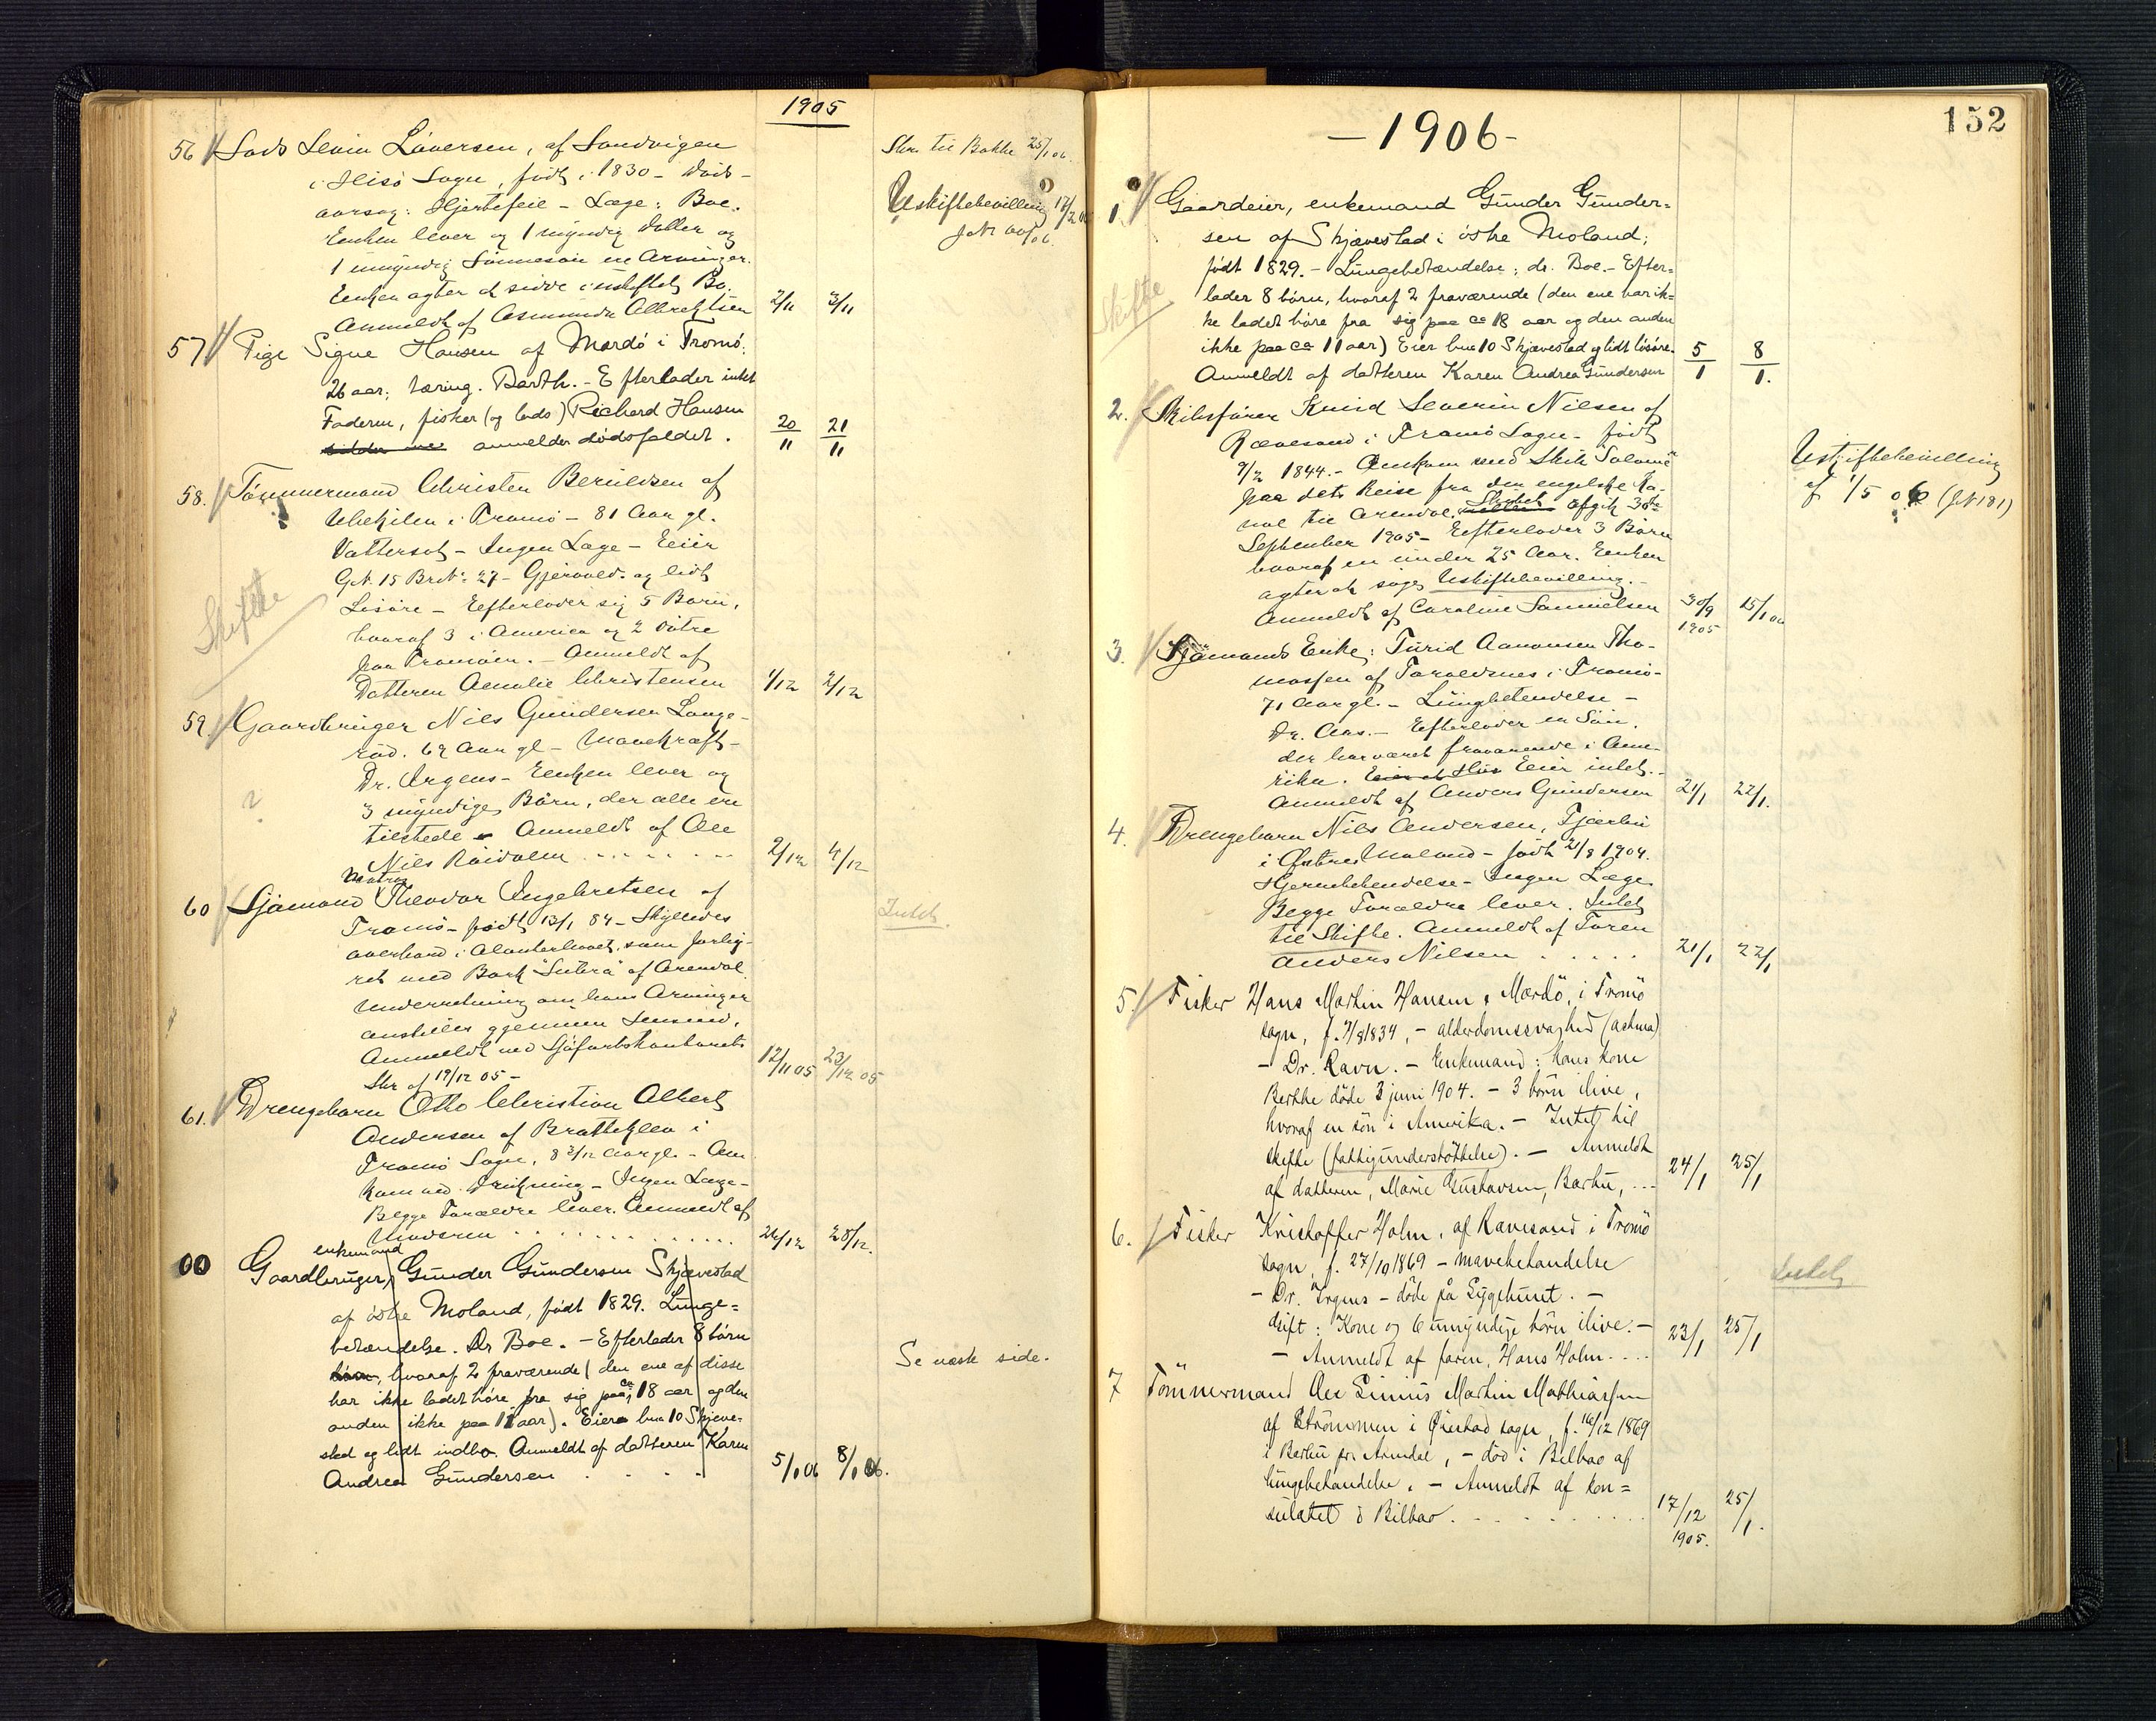 1905
56 Lods Severin Löversen, af Sandvigen
i Hisö Sogn, födt i 1830 - Döds-
aarsag: Hjertefeil - Læge: Boe.
Enken lever og 1 myndig Datter og
1 umyndig Sönnesön er Arvinger.
Enken agter at sidde i uskiftet Bo.
Anmeldt af Asmunda Albrektsen 2/11 3/11
Skr. til Bakke 25/1 06.
Uskiftebevilling 17/2 06
57 Pige Signe Hansen af Mærdö i Tromö:
26 aar; tæring. Barth. - Efterlader intet
Faderen, fisker (og lods) Richard Hansen
anmelder dödsfaldet. 20/11 21/11
58. Tömmermand Christen Beruldsen af
i Tromö - 81 Aar gl.
Vattersot - Ingen Læge - Eier
G.N. 15 Br.N: 27 - Gjervold. og lidt
Lösöre - Efterlader sig 5 Börn,
hvoraf 3 i America og 2 Dötre
paa Tromöen. - Anmeldt af
Datteren Amalie Christensen 1/12 2/12
Skifte
59. Gaardbruger Nils Gundersen Longe-
röd. 69 Aar gl - Mavekræft -
Dr. Irgens - Enken lever og
3 myndige Börn, der alle ere
tilstede - Anmeldt af Ole
Nils Röidalen ........ 2/12 4/12
?
Matros
60 Sjömand Theodor Ingebretsen af
Tromö - födt 13/1 84 - Skylledes
overbord i Atlanterhavet, som forhy-
ret med Bark "Sutra" af Arendal
Underretning om hans Arvinger
anstilles gjennem Lensmd.
Anmeldt ved Sjöfartskontorets
Skr af 19/12 05 - 12/11 05 23/12 05
Intet.
61. Drengebarn Otto Christian Albert
Andersen af Bratteklev i
Tromö Sogn, 8 3/12 Aar gl. - Om
kom ved Drukning - Ingen Læge -
Begge Forældre lever. Anmeldt af
Moderen .............. 26/12 28/12.
enkemand
00 Gaardbruger, Gunder Gundersen Skjævestad
af östre Moland, födt 1829. Lunge=
betændelse. Dr Boe. - Efterlader 8 börn
börn, hvoraf 2 fraværende (den ene af disse
har ikke ladet höre fra sig paa ca 18 aar og den
anden ikke paa 11 aar). Eiere bno 10 Skjæve-
sted og lidt indbo. Anmeldt af datteren Karen
Andrea Gundersen .... 5/1 06 8/1 06.
Se næste side.
152
- 1906 -
1. Gaardeier, enkemand Gunder Gunder=
sen af Skjævestad i östre Moland;
födt 1829. - Lungebetændelse; dr. Boe. - Efter=
lader 8 börn, hvoraf 2 fraværende (den ene har ik=
ke ladet höre fra sig paa ca 18 aar og den anden
ikke paa ca 11 aar) Eier bno 10 Skjævestad og lidt lösöre.
Anmeldt af datteren Karen Andrea Gundersen 5/1 8/1.
Skifte
2. Skibsförer Knud Severin Nilsen af
Rævesand i Tromö Sogn - födt
9/2 1844. - Omkom med Skib "Salome"
paa dets Reise fra den engelske Ka-
nal til Arendal. Skibet afgik 30te
September 1905 - Efterlader 3 Börn
hvoraf en under 25 Aar. Enken
agter at söge Uskiftebevilling. -
Anmeldt af Caroline Samuelsen 30/9 1905 15/1 06
Uskiftebevilling
af 1/5 06 (JN 181)
3. Sjömands Enke: Turid Aanonsen Tho-
massen af Taraldsnes i Tromö -
71 Aar gl. - Lungbetendelse -
Dr. Aas. - Efterlader en Sön,
der har været fraværende i Ame-
rika. Eier et Hus Eier intet. -
Anmeldt af Anders Gundersen 21/1 22/1.
4. Drengebarn Nils Andersen, Fjærbu
i Östre Moland - födt 21/8 1904.
Hjernebetendelse - Ingen Læge.
Begge Forældre lever. Intet
til Skifte. Anmeldt af Faren
Anders Nilsen ..... 21/1 22/1
5. Fisker Hans Martin Hansen, Mærdö, i Tromö
sogn, f. 7/8 1834, - alderdomssvaghed (astma)
- Dr. Ravn. - Enkemand: hans kone
Berthe döde 3 juni 1904. - 3 börn ilive,
hvoraf en sön i Amerika. - Intet til
skifte (fattigunderstöttelse). - Anmeldt
af datteren, Marie Gustavsen, Barbu, ... 24/1 25/1
6. Fisker Kristoffer Holm, af Rævesand i Tromö
sogn, f. 27/10 1869 - mavebetændelse
- Dr. Irgens - döde på Sygehuset. -
Gift: Kone og 6 umyndige börn ilive. -
- Anmeldt af faren, Hans Holm.... 23/1 25/1
Intet
7 Tömmermand Ole Linius Martin Mathiassen
af Strömmen i Öiestad sogn, f. 16/12 1869
i Barbu pr. Arendal, - död i Bilbao af
lungebetændelse. - Anmeldt af kon=
sulatet i Bilbao. ......... 17/12 1905. 25/1.